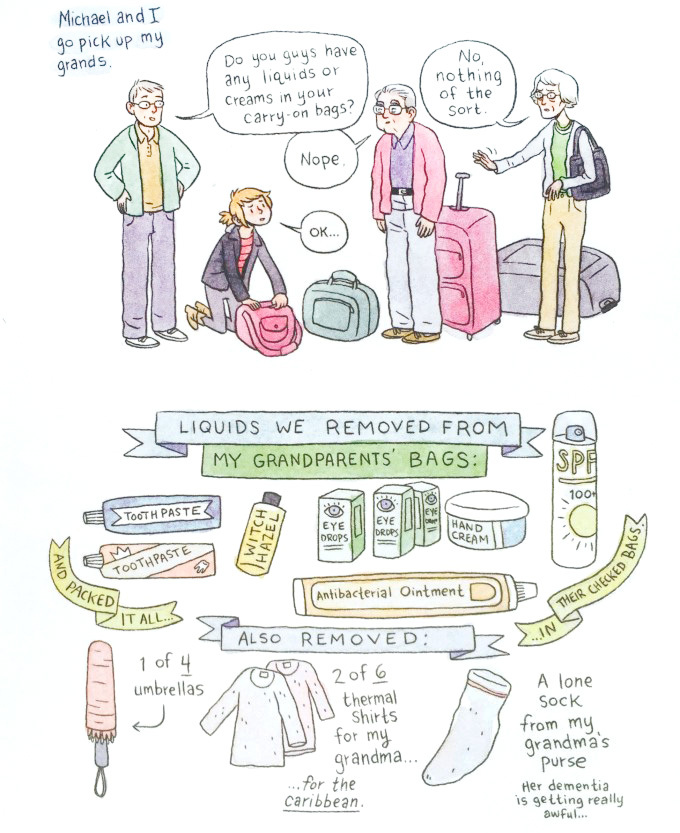 Michael and I
go pick up my
grands.
Do you guys have
any liquids or
creams in your
carry-on bags?
No,
nothing
of the
sort.
Nope.
OK...
LIQUIDS WE REMOVED FROM
MY GRANDPARENTS' BAGS:
TOOTHPASTE
TOOTHPASTE
WITCH
HAZEL
EYE
DROPS
EYE
DROPS
EYE
DROP
HAND
CREAM
SPF
100+
Antibacterial Ointment
AND PACKED
IT ALL...
...IN
THEIR CHECKED BAGS.
ALSO REMOVED:
1 of 4
umbrellas
2 of 6
thermal
shirts
for my
grandma...
...for the
caribbean.
A lone
sock
from my
grandma's
purse
Her dementia
is getting really
awful...